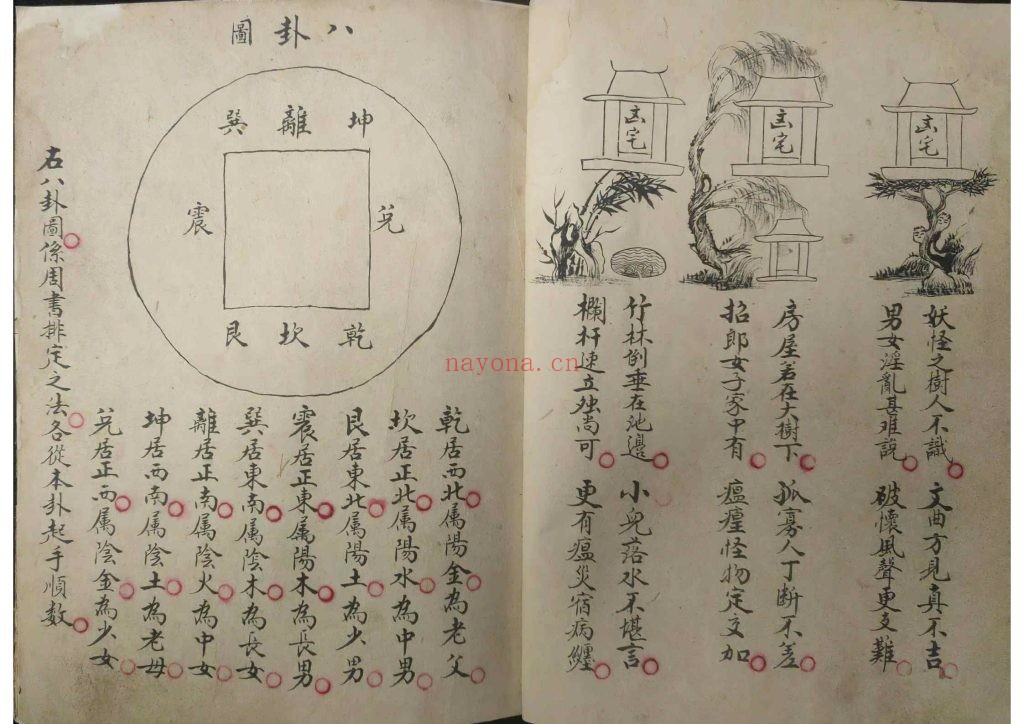 凶宅
妖怪之樹人不識 文曲方見真不吉
男女淫亂甚难說 破懷風聲更交難
凶宅
房屋若在大樹下 孤寡人丁断不差
招郎女子家中有 瘟瘽怪物定交加
凶宅
竹林倒垂在池邊 小兒落水不堪言
欄杆速立独尚可 更有瘟災宿病纏
八卦圖
坤
離
巽
兌
震
乾
坎
艮
乾居西北属陽金為老父
坎居正北属陽水為中男
艮居東北属陽土為少男
震居正東属陽木為長男
巽居東南属陰木為長女
離居正南属陰火為中女
坤居西南属陰土為老母
兌居正西属陰金為少女
右八卦圖係周書排定之法各從本卦起手順数
nayona.cn